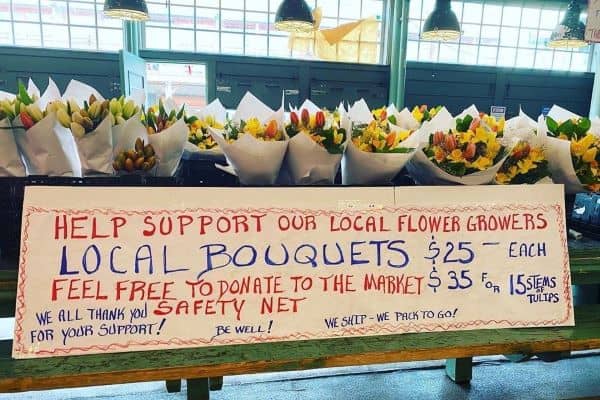 HELP SUPPORT OUR LOCAL FLOWER GROWERS
LOCAL BOUQUETS $25 — EACH
FEEL FREE TO DONATE TO THE MARKET $35 FOR 15 STEMS OF TULIPS
SAFETY NET
WE ALL THANK YOU
FOR YOUR SUPPORT! BE WELL! WE SHIP - WE PACK TO GO!